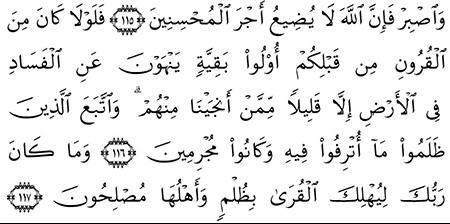 وَٱصۡبِرۡ فَإِنَّ ٱللَّهَ لَا يُضِيعُ أَجۡرَ ٱلۡمُحۡسِنِينَ ١١٥ فَلَوۡلَا كَانَ مِنَ
ٱلۡقُرُونِ مِن قَبۡلِكُمۡ أُوْلُواْ بَقِيَّةٖ يَنۡهَوۡنَ عَنِ ٱلۡفَسَادِ
فِي ٱلۡأَرۡضِ إِلَّا قَلِيلٗا مِّمَّنۡ أَنجَيۡنَا مِنۡهُمۡۗ وَٱتَّبَعَ ٱلَّذِينَ
ظَلَمُواْ مَآ أُتۡرِفُواْ فِيهِ وَكَانُواْ مُجۡرِمِينَ ١١٦ وَمَا كَانَ
رَبُّكَ لِيُهۡلِكَ ٱلۡقُرَىٰ بِظُلۡمٖ وَأَهۡلُهَا مُصۡلِحُونَ ١١٧